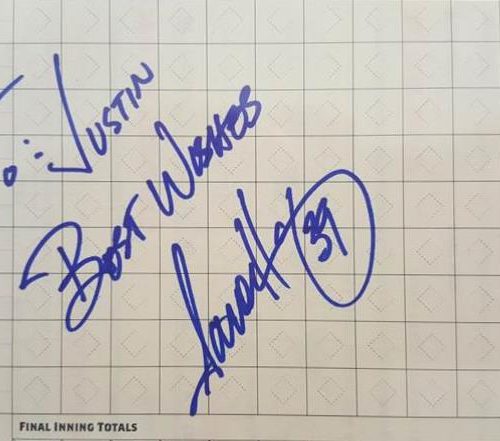 To: Justin
Best Wishes
39
FINAL INNING TOTALS